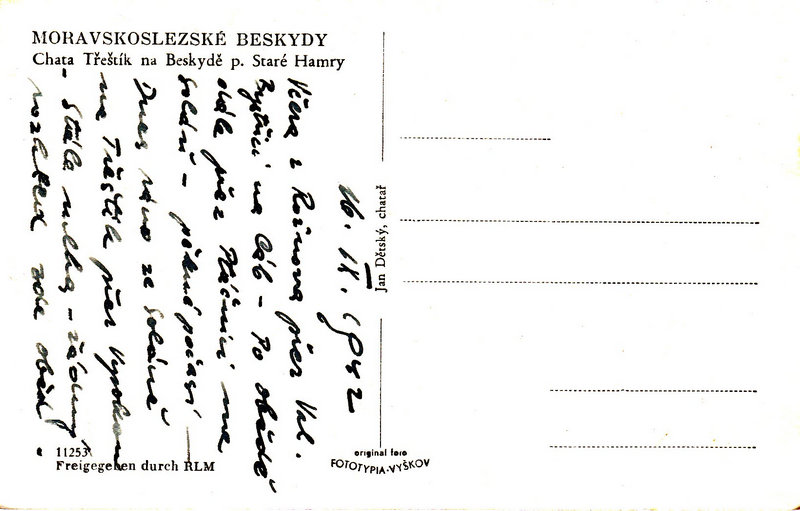 MORAVSKOSLEZSKÉ BESKYDY
Chata Třeštík na Beskydě p. Staré Hamry
16. IX. 1942
Včera z Rožnova přes Val.
Bystřici na Cáb – Po obědě
dále přes Ptáčnici na
Soláň – pěkné počasí –
Dnes ráno ze Soláně
na Třeštík přes Vysokou
– Stále mlha, – žádný
rozhled zde oběd
Jan Dětský, chatař
11253
Freigegeben durch RLM
original foto
FOTOTYPIA-VYŠKOV